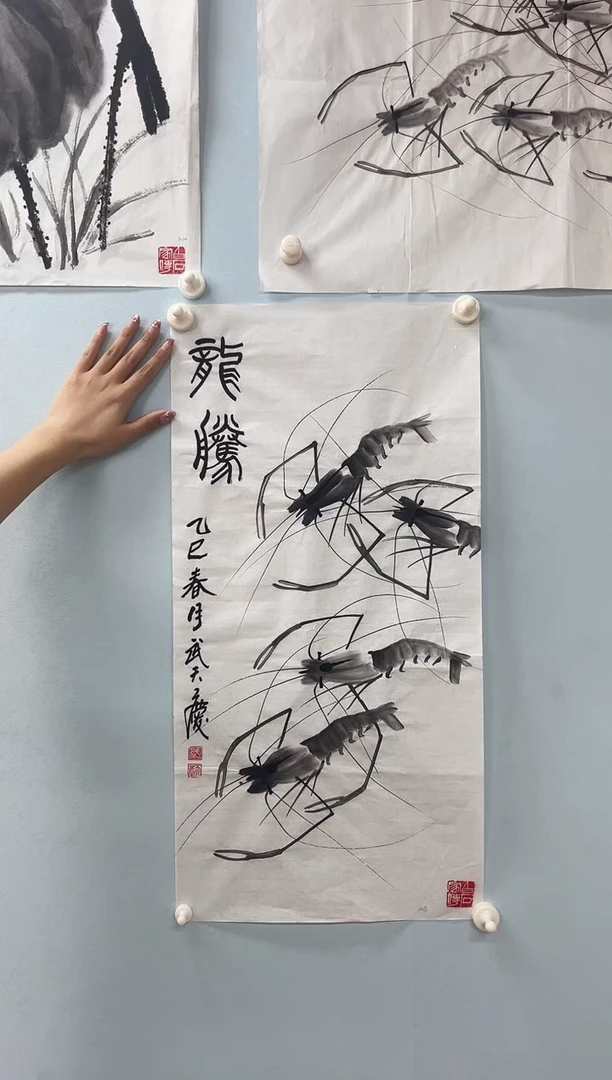 龍騰
乙巳春月武天慶